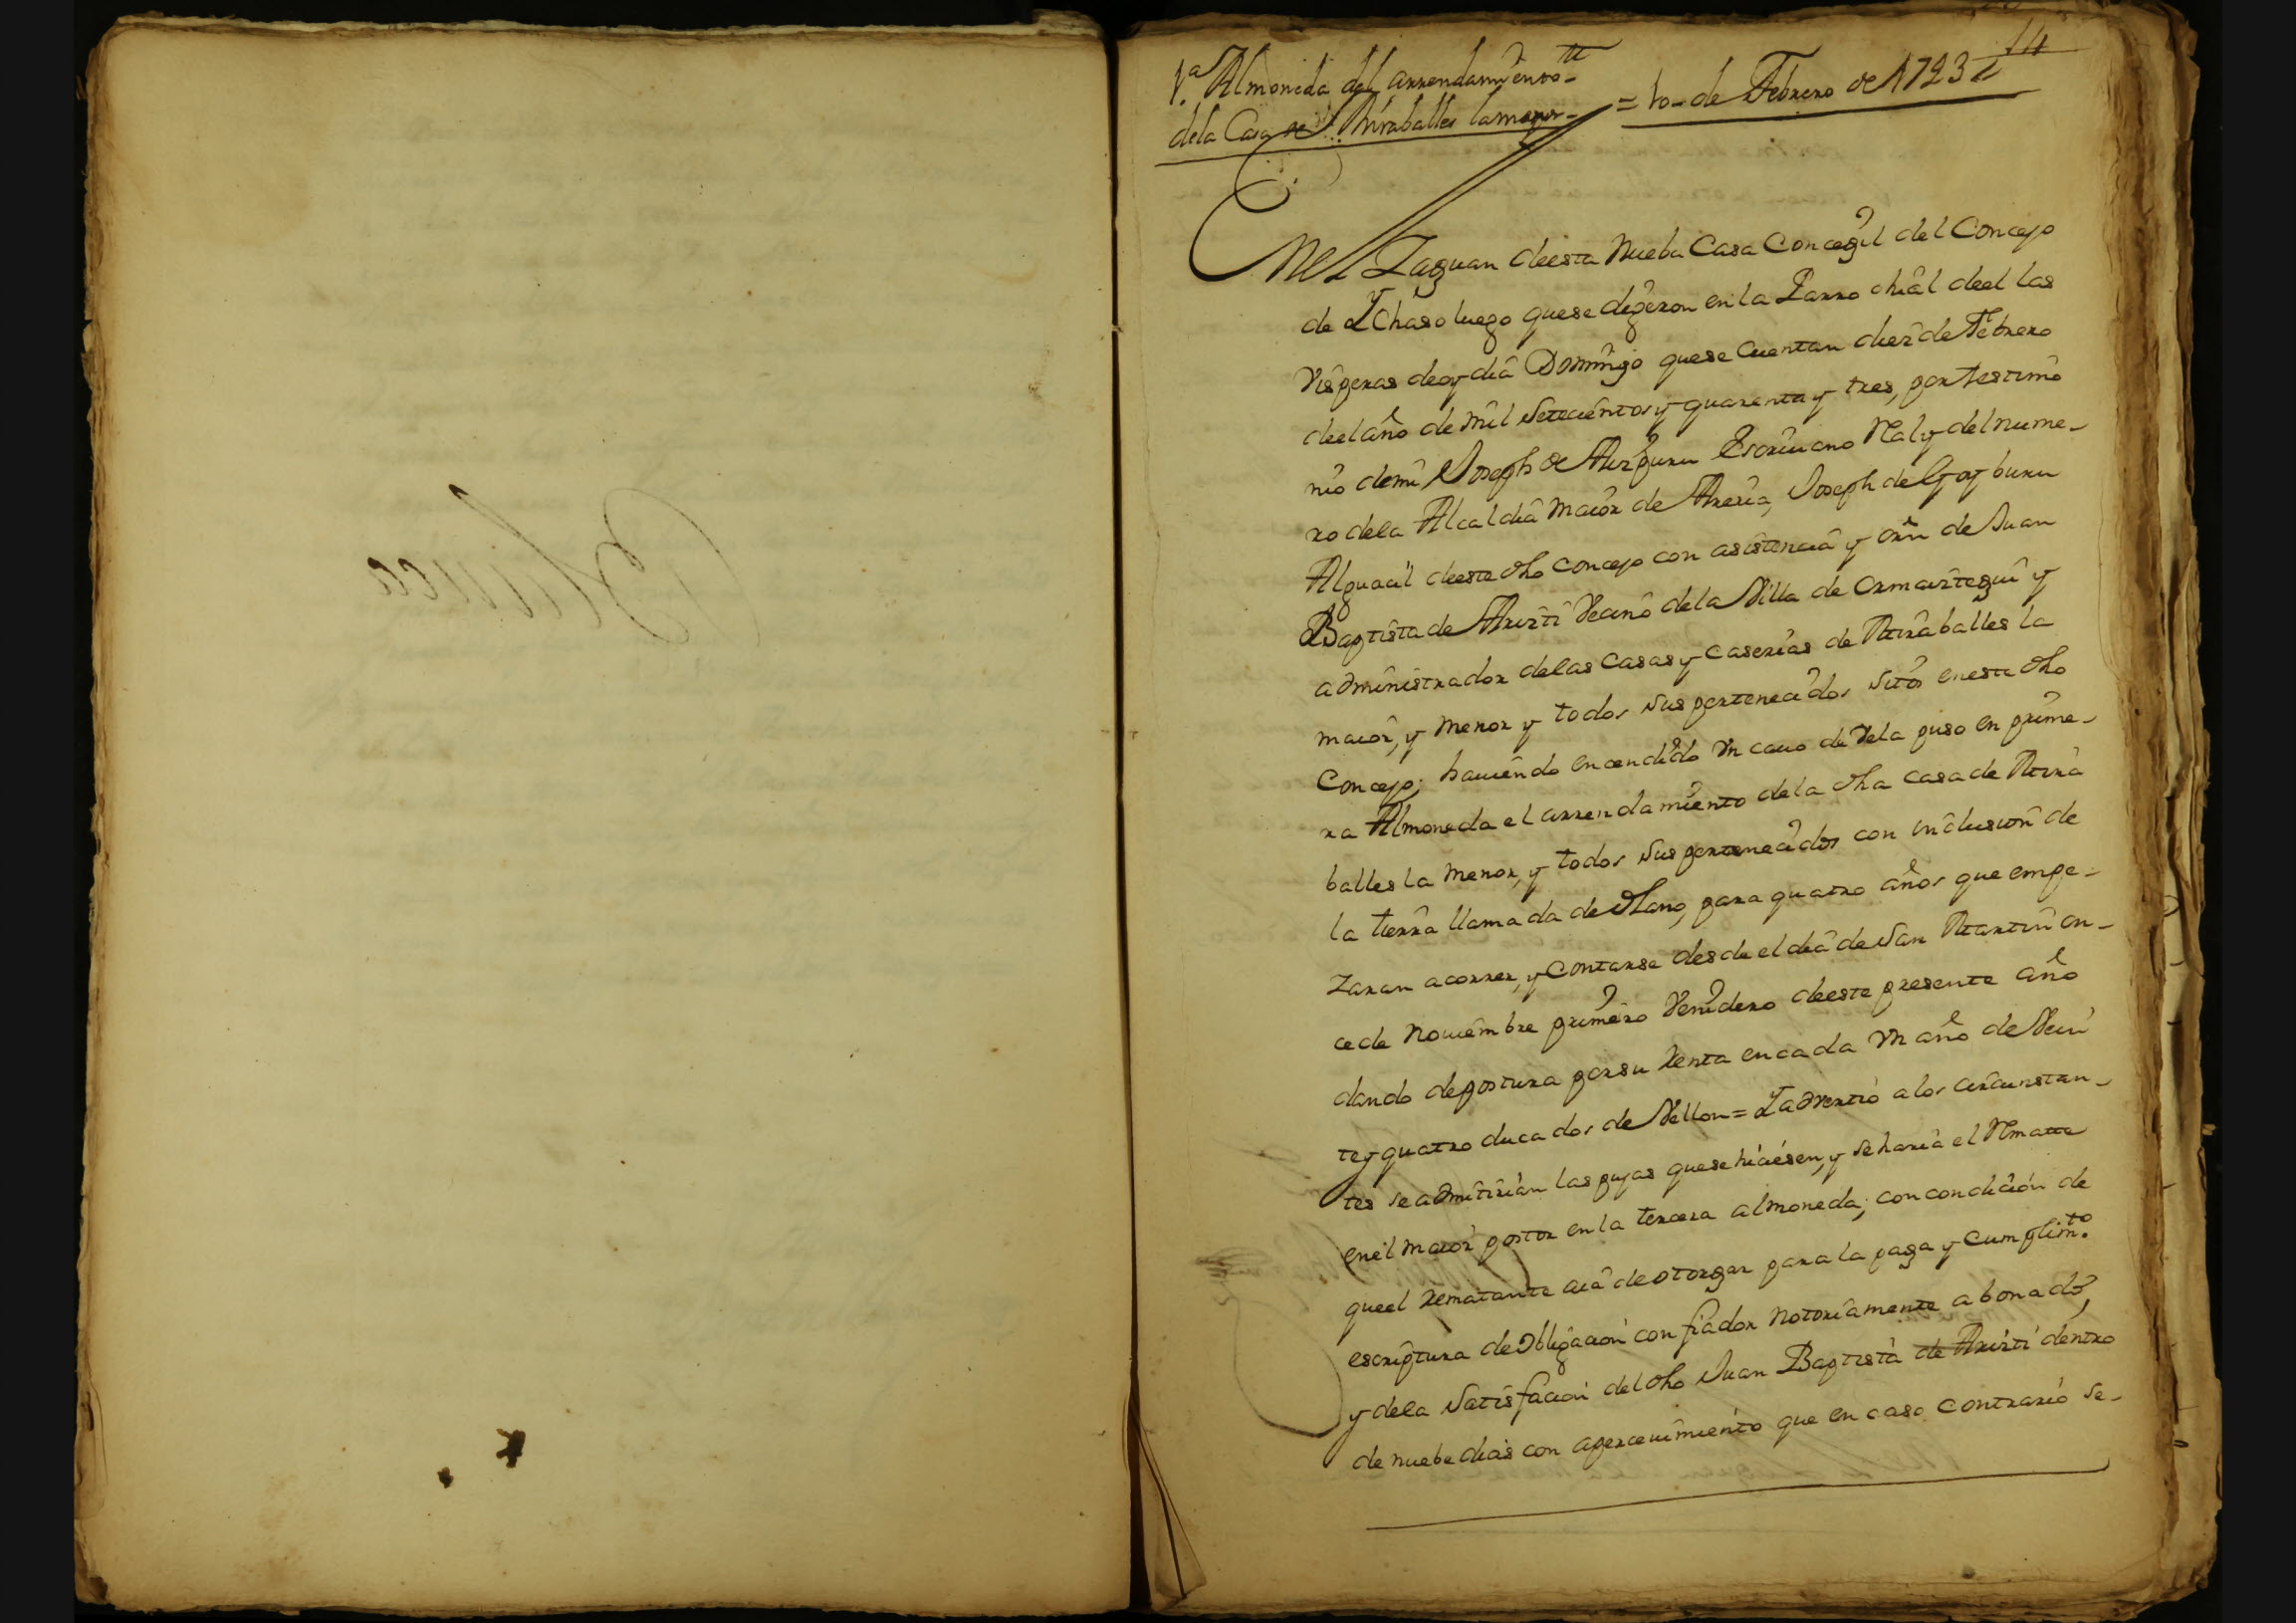 14
1.ª Almoneda del arrendamiento
de la Casa de Miraballes la menor = 10 de Febrero de 1743
En el Zaguan de esta Nueba Casa Concegil del Concejo
de Ychaso luego que se digeron en la Parrochial de el las
Visperas de oy dia Domingo que se cuentan diez de Febrero
de el año de mil setecientos y quarenta y tres, por testimo
nio de mi Joseph de Aizpuru Escriuano Ral y del nume-
ro de la Alcaldia maior de Areria, Joseph de Goyburu
Alguacil de este dho Concejo con asistencia y orn de Juan
Baptista de Aristi Vecino de la Villa de Ormaiztegui y
administrador de las Casas y Caserias de Miraballes la
maior, y menor y todos sus pertenecidos sitos en este dho
Concejo; hauiendo encendido Vn cauo de Vela puso en prime-
ra Almoneda el arrendamiento de la dha casa de Mira
balles la menor, y todos sus pertenecidos con inclusion de
la tierra llamada de Olano, para quatro años que empe-
zaran a correr, y contarse desde el dia de San Martin on-
ce de Nouiembre primero Venidero de este presente año
dando de postura por su Renta en cada Vn año de Vein
te y quatro ducados de Vellon = Y advertio a los circunstan-
tes se admitirian las pujas que se hiciesen, y se haria el Rmatte
en el maior postor en la tercera almoneda; con condicion de
que el Rematante aia de otorgar para la paga y cumplimto.
escriptura de obligacion con fiador notoriamente abonado,
y de la satisfacion del dho Juan Baptista de Aristi dentro
de nuebe dias con aperceuimiento que en caso contrario se-